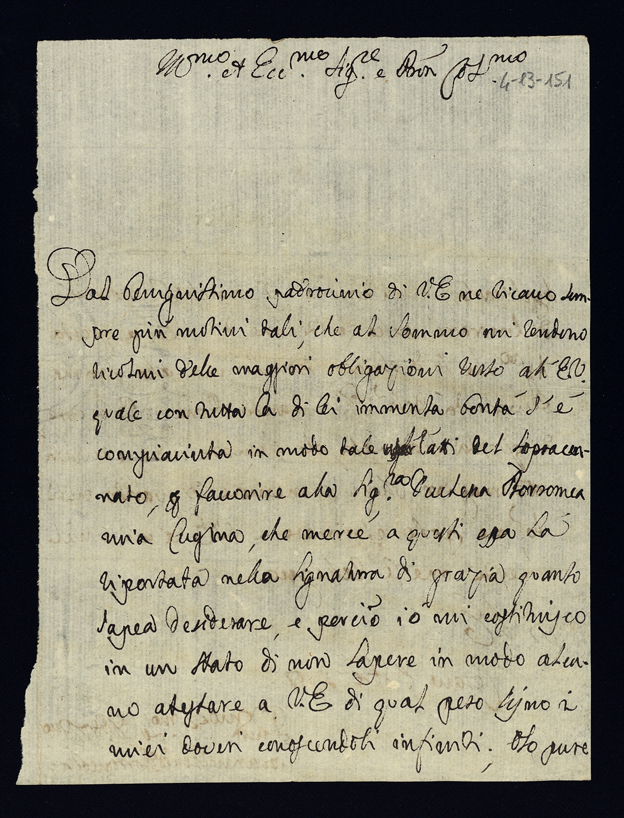 Ill.mo et Ecc.mo Sig.re e Pron Col.mo
4-13-151
Dal benignissimo padrocinio di V.E ne ricavo sem-
pre più motivi tali, che al sommo mi rendono
ricolmi delle maggiori obligazioni verso all'E.V.
quale con tutta la di lei immensa bontà s'è
compiaciuta in modo tale atti del sopracen-
nato, favorire alla Sig.ra Duchesa Borromea
mia Cugina, che mercè, a questi essa hà
riportata nella signatura di grazia quanto
sapea desiderare, e perciò io mi costituisco
in un stato di non sapere in modo alcu-
no atestare a V.E di qual peso sijno i
miei doveri conoscendoli infiniti. Oso pure